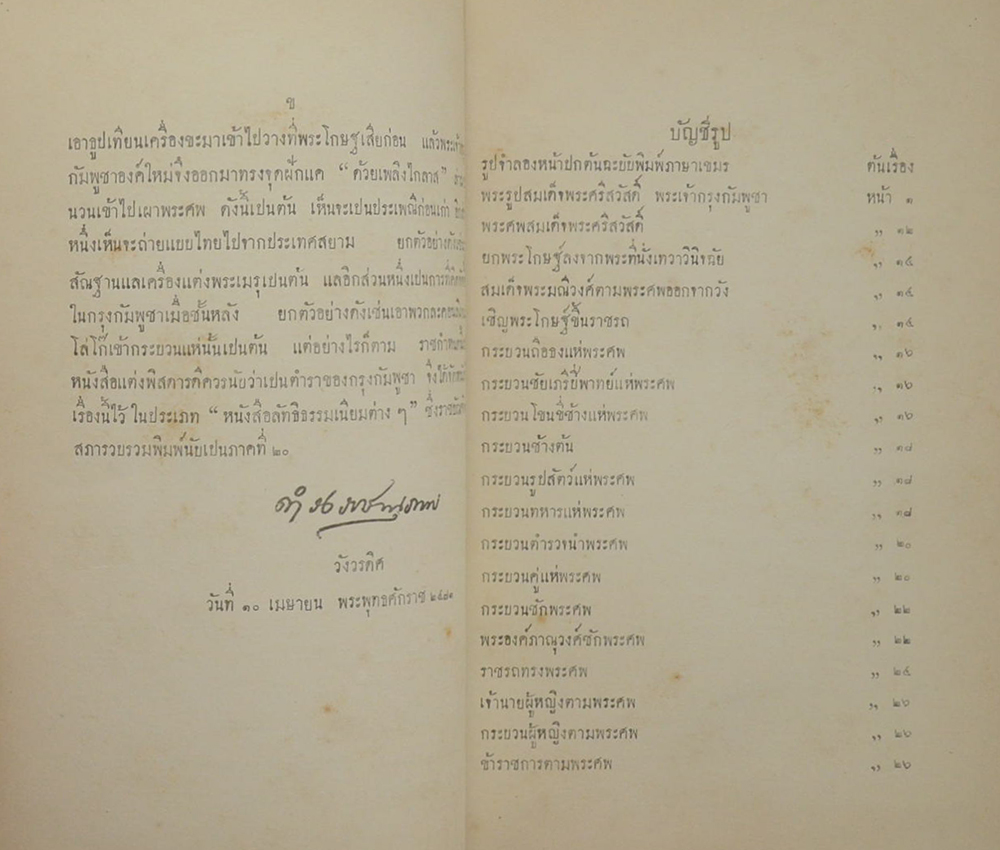 ข
เอาธูปเทียนเครื่องขะมาเข้าไปวางที่พระโกษฐเสียก่อน แล้วพระเจ้า
กัมพูชาองค์ใหม่จึงออกมาทรงจุดฝักแค “ ด้วยเพลิงไกลาส ”
นวนเข้าไปเผาพระศพ ดังนี้เปนต้น เห็นจะเปนประเพณีก่อนเก่า
หนึ่งเห็นจะถ่ายแบบไทยไปจากประเทศสยาม ยกตัวอย่างดังเช่น
สัณฐานแลเครื่องแต่งพระเมรุเปนต้น แลอีกส่วนหนึ่งเปนการที่คิด
ในกรุงกัมพูชาเมื่อชั้นหลัง ยกตัวอย่างดังเช่นเอาพวกละคอน
โล่โก๊เข้ากระบวนแห่นั้นเปนต้น แต่อย่างไรก็ตาม
หนังสือแต่งพิสดารดีควรนับว่าเปนตำราของกรุงกัมพูชา จึงได้
เรื่องนี้ไว้ ในประเภท “ หนังสือลัทธิธรรมเนียมต่าง ๆ ” ซึ่งราชบัณฑิต
สภารวบรวมพิมพ์นับเปนภาคที่ ๒๐
ดำรงราชานุภาพ
วังวรดิศ
วันที่ ๑๐ เมษายน พระพุทธศักราช ๒๔๗๑
บัญชีรูป
รูปจำลองหน้าปกต้นฉะบับพิมพ์ภาษาเขมร ต้นเรื่อง
พระรูปสมเด็จพระศรีสวัสดิ์ พระเจ้ากรุงกัมพูชา หน้า ๑
พระศพสมเด็จพระศรีสวัสดิ์ ,, ๑๒
ยกพระโกษฐ์ลงจากพระที่นั่งเทวาวินิจฉัย ,, ๑๔
สมเด็จพระมณีวงศ์ตามพระศพออกจากวัง ,, ๑๔
เชิญพระโกษฐ์ขึ้นราชรถ ,, ๑๔
กระบวนถือธงแห่พระศพ ,, ๑๖
กระบวนชัยเภรีย์พาทย์แห่พระศพ ,, ๑๖
กระบวนโขนขี่ช้างแห่พระศพ ,, ๑๖
กระบวนช้างต้น ,, ๑๘
กระบวนรูปสัตว์แห่พระศพ ,, ๑๘
กระบวนทหารแห่พระศพ ,, ๑๘
กระบวนตำรวจนำพระศพ ,, ๒๐
กระบวนคู่แห่พระศพ ,, ๒๐
กระบวนชักพระศพ ,, ๒๒
พระองค์ภาณุวงศ์ชักพระศพ ,, ๒๒
ราชรถทรงพระศพ ,, ๒๔
เจ้านายผู้หญิงตามพระศพ ,, ๒๖
กระบวนผู้หญิงตามพระศพ ,, ๒๖
ข้าราชการตามพระศพ ,, ๒๖